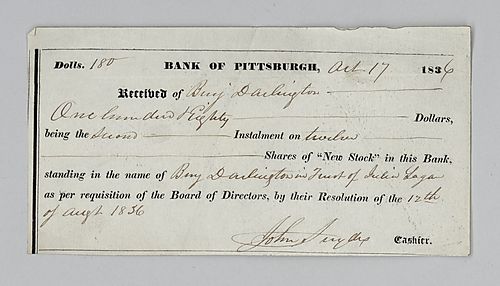 Dolls. 180 BANK OF PITTSBURGH, Oct 17 1836
Received of Benj Darlington
One hundred Eighty Dollars,
being the Second Instalment on twelve
Shares of "New Stock" in this Bank,
standing in the name of Benj Darlington in Trust of
as per requisition of the Board of Directors, by their Resolution of the 12th
of augt 1836
John Snyder Cashier.